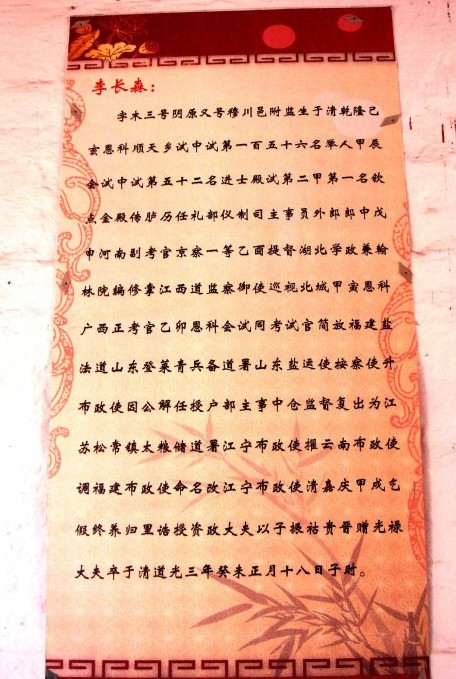 李长森：
字木三号阴原又号穆川邑附监生于清乾隆己
亥恩科顺天乡试中试第一百五十六名举人甲辰
会试中试第五十二名进士殿试第二甲第一名钦
点金殿传胪历任礼部仪制司主事员外郎郎中戊
申河南副考官京察一等乙酉提督湖北学政兼翰
林院编修掌江西道监察御使巡视北城甲寅恩科
广西正考官乙卯恩科会试同考试官简放福建盐
法道山东登莱青兵备道署山东盐运使按察使升
布政使因公解任授户部主事中仓监督复出为江
苏松常镇太粮储道署江宁布政使擢云南布政使
调福建布政使命名改江宁布政使清嘉庆甲戌乞
假终养归里诰授资政大夫以子振祜贵晋赠光禄
大夫卒于清道光三年癸未正月十八日子时。